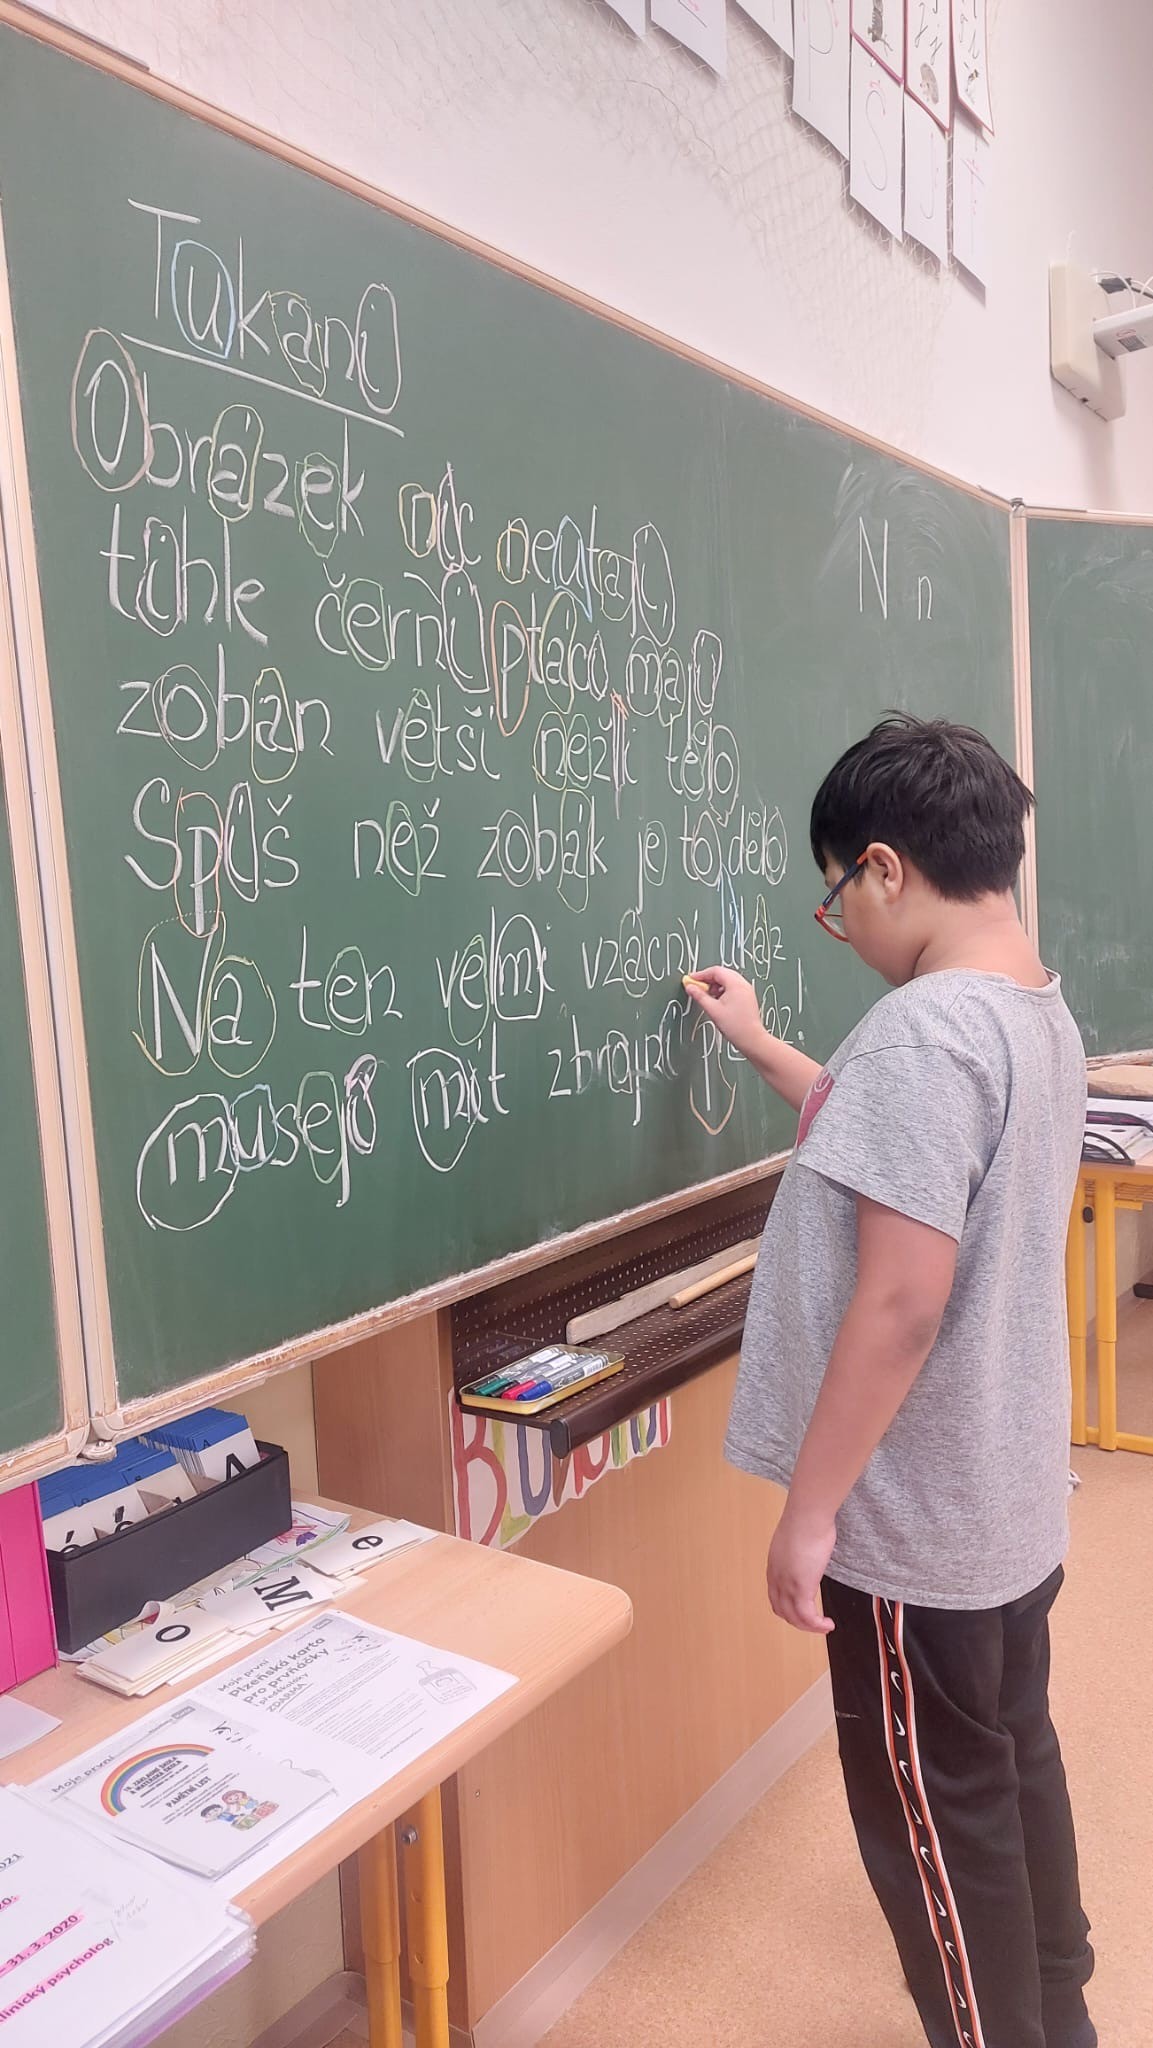 Tukani
Obrázek nic neutají,
tihle černí ptáci mají
zoban větší nežli tělo
Spíš než zobák je to dělo
Na ten velmi vzácný úkaz
musejí mít zbrojní průkaz!
N n
Moje první
plzeňská karta
pro prvňáčky
i předškoláky
ZDARMA
Moje první
A MATEŘSKÁ ŠKOLA
PAMĚTNÍ LIST
o
M
e
A
2021
- 31. 3. 2020
klinický psycholog
P
S
J